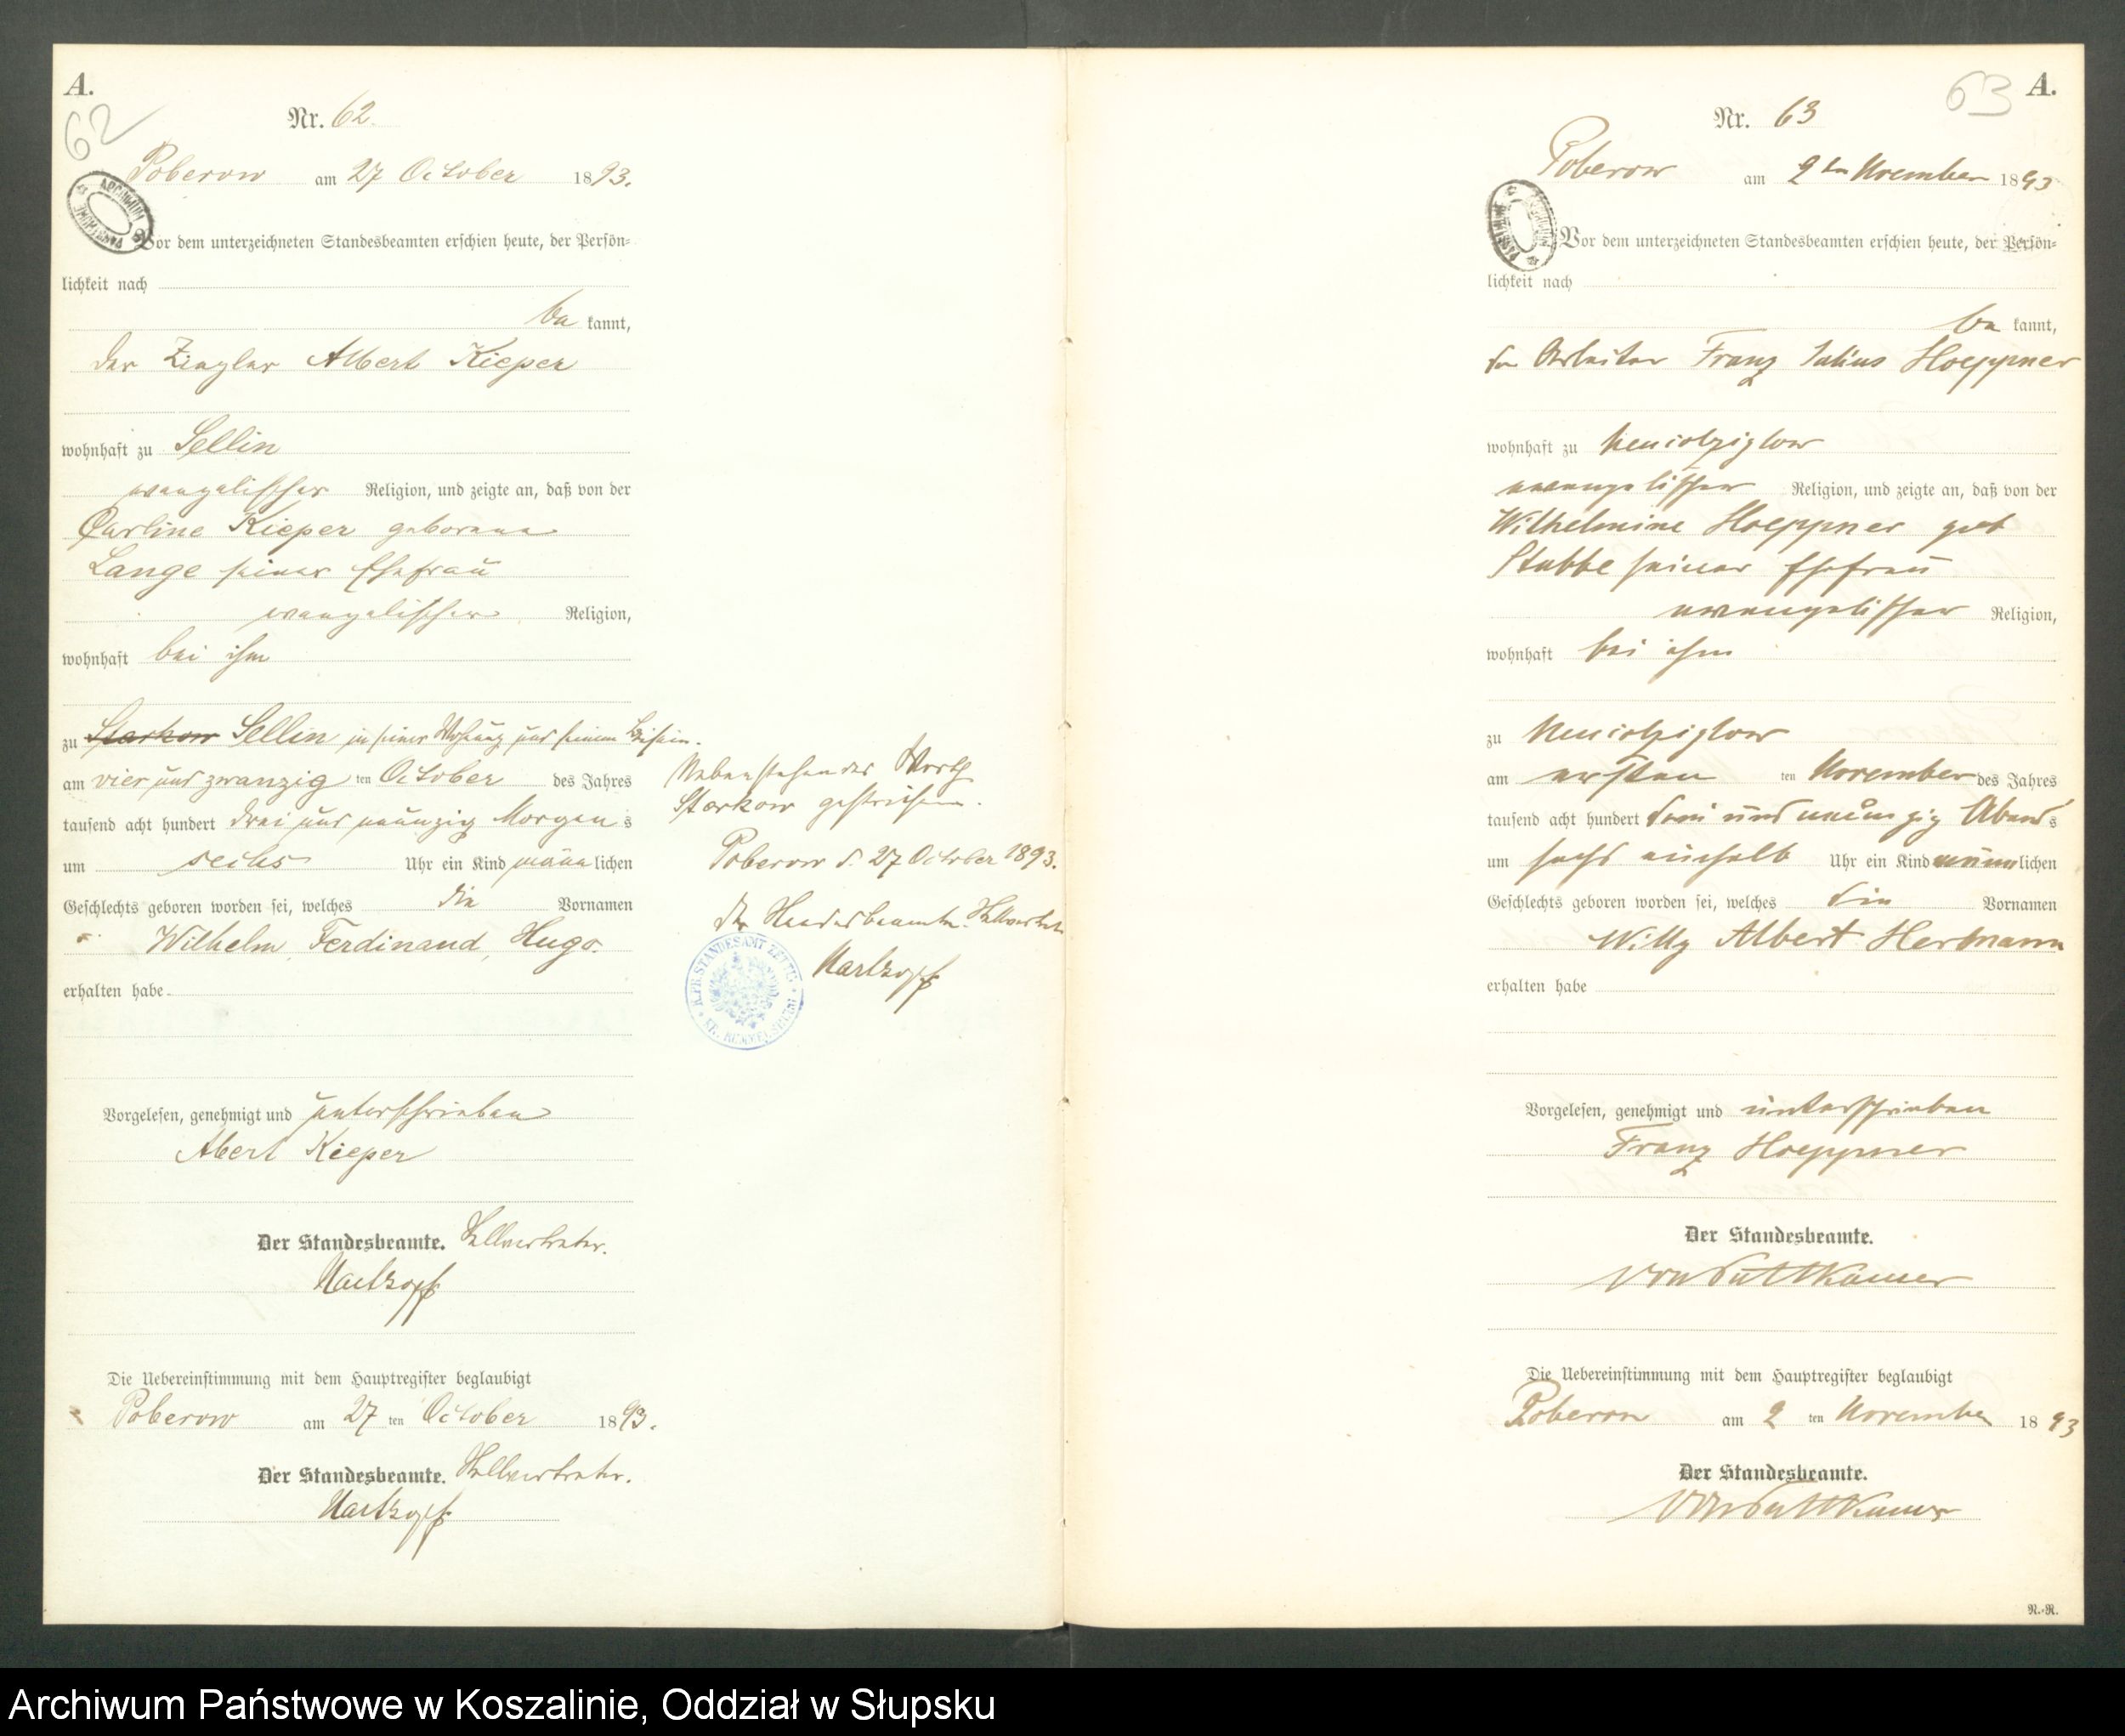 A.
62
Nr. 62.
Poberow am 27 October 1893.
ARCHIWUM PAŃSTWOWE
Vor dem unterzeichneten Standesbeamten erschien heute, der Persön-
lichkeit nach
be kannt,
der Ziegler Albert Kieper
wohnhaft zu Sellin
evangelischer Religion, und zeigte an, daß von der
Carline Kieper geborene
Lange seiner Ehefrau
evangelischer Religion,
wohnhaft bei ihm
zu Starkow Sellin in seiner Wohnung und seinem Beisein.
am vier und zwanzig ten October des Jahres
tausend acht hundert drei und neunzig Morgens
um sechs Uhr ein Kind männlichen
Geschlechts geboren worden sei, welches die Vornamen
Wilhelm, Ferdinand, Hugo.
erhalten habe.
Vorgelesen, genehmigt und unterschrieben
Albert Kieper
Der Standesbeamte. Stellvertreter.
Hartkopf
Die Uebereinstimmung mit dem Hauptregister beglaubigt
Poberow am 27 ten October 1893.
Der Standesbeamte. Stellvertreter.
Hartkopf
Nebenstehendes Wort
Starkow gestrichen.
Poberow d. 27 October 1893.
Der Standesbeamte. Stellvertreter
Hartkopf
K. PR. STANDESAMT
KR. RUMMELSBURG
63 A.
Nr. 63
Poberow am 2 ten November 1893
ARCHIWUM PAŃSTWOWE
Vor dem unterzeichneten Standesbeamten erschien heute, der Persön-
lichkeit nach
be kannt,
der Arbeiter Franz Julius Hoeppner
wohnhaft zu Neucolziglow
evangelischer Religion, und zeigte an, daß von der
Wilhelmine Hoeppner geb
Stubbe seiner Ehefrau
evangelischer Religion,
wohnhaft bei ihm
zu Neucolziglow
am ersten ten November des Jahres
tausend acht hundert drei und neunzig Abends
um sechs einhalb Uhr ein Kind männlichen
Geschlechts geboren worden sei, welches die Vornamen
Willy Albert Hermann
erhalten habe
Vorgelesen, genehmigt und unterschrieben
Franz Hoeppner
Der Standesbeamte.
von Puttkamer
Die Uebereinstimmung mit dem Hauptregister beglaubigt
Poberow am 2 ten November 1893
Der Standesbeamte.
von Puttkamer
R.-R.
Archiwum Państwowe w Koszalinie, Oddział w Słupsku